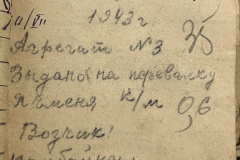 10/VII 1943 г.
Агрегат № 3 35
Здано на перевалку
Яменя к/м 0,6
Возчик: